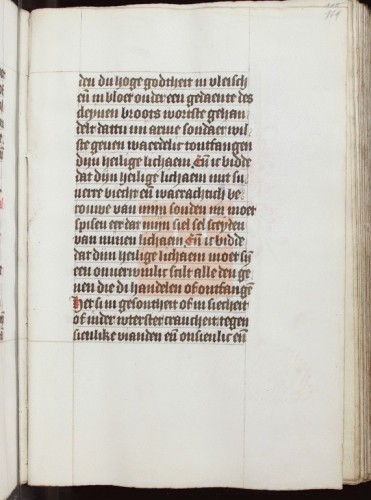 den du hoge godtheit in vleisch
eñ in bloet onder een gedaente des
cleynen broots worste gehan
delt dattu mi arme sondaer wil
ste geuen waerdelic tontfangen
dijn heilige lichaem. Eñ ic bidde
dat dijn heilige lichaem mit su
uerre biecht eñ waerachtich be
rouwe van mijn sonden mi moet
spisen eer dat mijn siel sel sceyden
van minen lichaem. Eñ ic bidde
dat dijn heilige lichaem moet sij
een onuerwinlic scilt alle den ge
nen die di handelen of ontfangē
Het si in gesontheit of in siecheit
of inder wterster crancheit tegen
sienlike vianden eñ onsienlic eñ